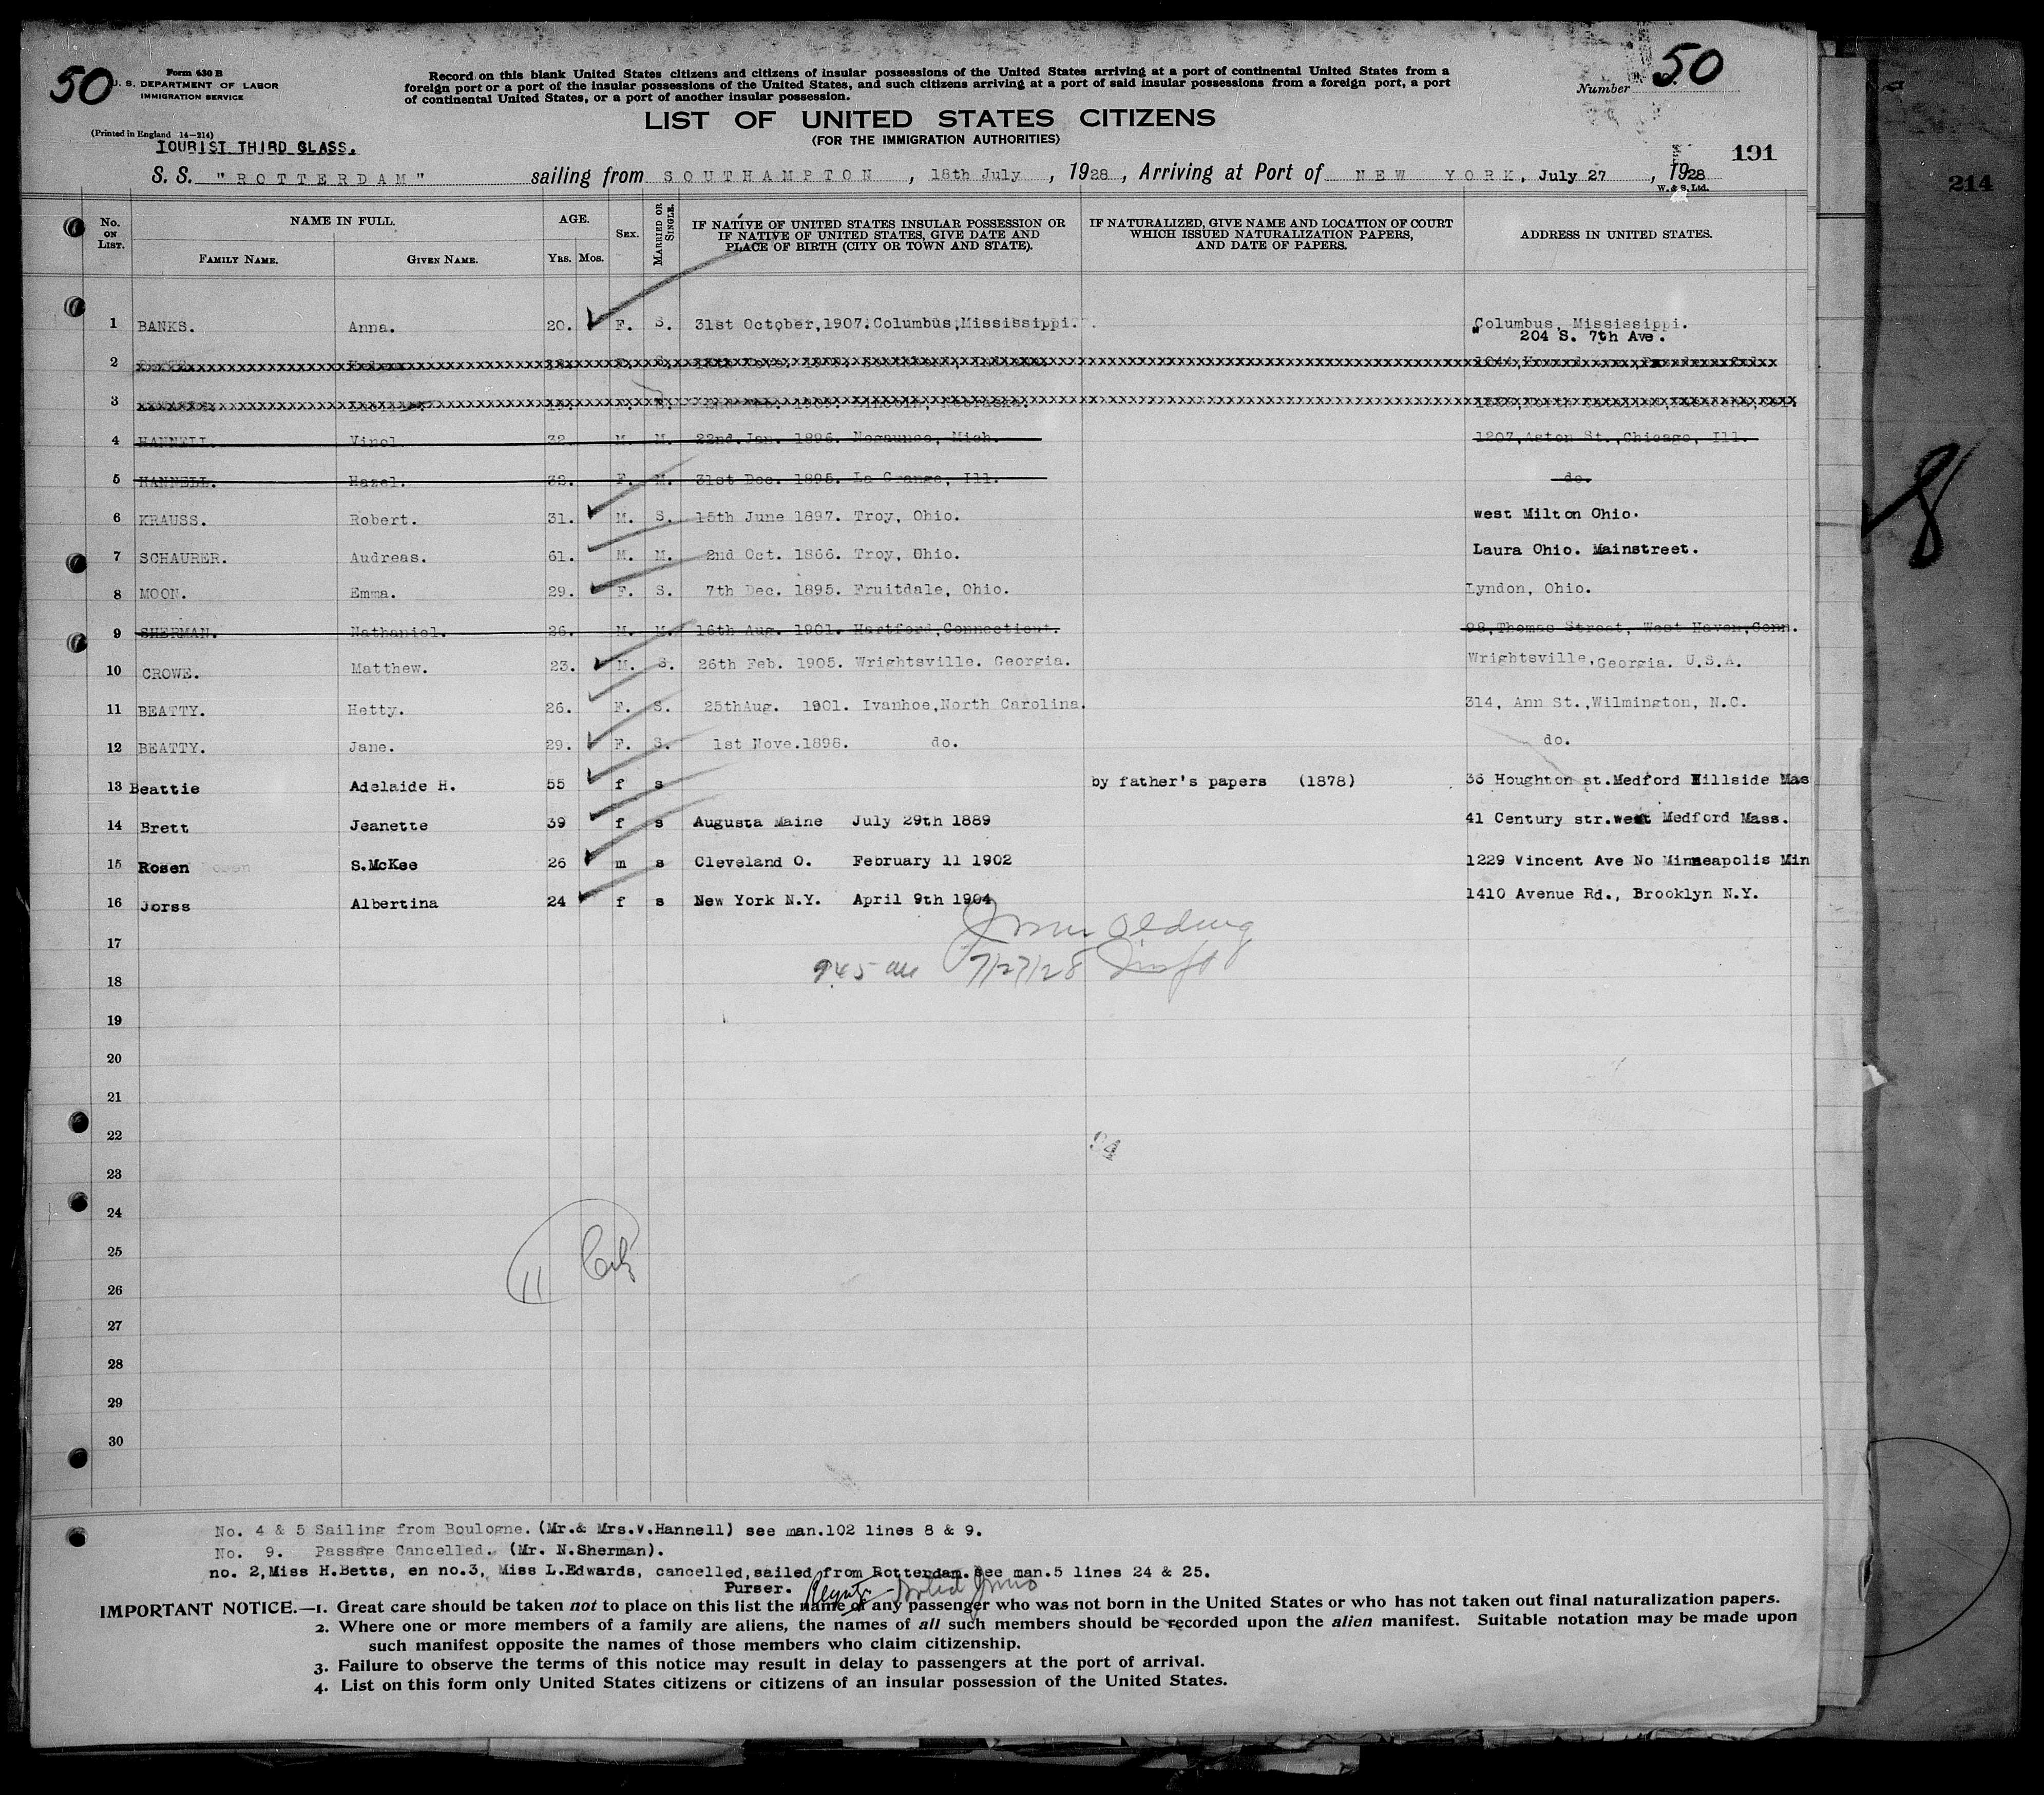 50
Form 630 B
U. S. DEPARTMENT OF LABOR
IMMIGRATION SERVICE
Record on this blank United States citizens and citizens of insular possessions of the United States arriving at a port of continental United States from a
foreign port or a port of the insular possessions of the United States, and such citizens arriving at a port of said insular possessions from a foreign port, a port
of continental United States, or a port of another insular possession.
Number 50
LIST OF UNITED STATES CITIZENS
(FOR THE IMMIGRATION AUTHORITIES)
(Printed in England 14-214)
TOURIST THIRD CLASS.
191
214
S. S. "ROTTERDAM" sailing from SOUTHAMPTON, 18th July, 1928, Arriving at Port of NEW YORK, July 27, 1928
W. & S. Ltd.
No. ON LIST. NAME IN FULL. AGE. SEX. MARRIED OR SINGLE. IF NATIVE OF UNITED STATES INSULAR POSSESSION OR IF NATIVE OF UNITED STATES, GIVE DATE AND PLACE OF BIRTH (CITY OR TOWN AND STATE). IF NATURALIZED, GIVE NAME AND LOCATION OF COURT WHICH ISSUED NATURALIZATION PAPERS, AND DATE OF PAPERS. ADDRESS IN UNITED STATES.
FAMILY NAME. GIVEN NAME. YRS. MOS.
1 BANKS. Anna. 20. F. S. 31st October,1907.Columbus,Mississippi. Columbus, Mississippi.
204 S. 7th Ave.
2
3
4 HANNELL. Vinol. 32. M. M. 22nd.Jan. 1896. Negaunee, Mich. 1207,Aston St.,Chicago, Ill.
5 HANNELL. Hazel. 32. F. M. 31st Dec. 1895. La Grange, Ill. do.
6 KRAUSS. Robert. 31. M. S. 15th June 1897. Troy, Ohio. west Milton Ohio.
7 SCHAURER. Audreas. 61. M. M. 2nd Oct. 1866. Troy, Ohio. Laura Ohio. Mainstreet.
8 MOON. Emma. 29. F. S. 7th Dec. 1895. Fruitdale, Ohio. Lyndon, Ohio.
9 SHERMAN. Nathaniel. 26. M. M. 16th Aug. 1901. Hartford,Connecticut. 98,Thomas Street, West Haven,Conn.
10 CROWE. Matthew. 23. M. S. 26th Feb. 1905. Wrightsville. Georgia. Wrightsville,Georgia. U.S.A.
11 BEATTY. Hetty. 26. F. S. 25thAug. 1901. Ivanhoe,North Carolina. 314, Ann St.,Wilmington, N.C.
12 BEATTY. Jane. 29. F. S. 1st Nove.1898. do. do.
13 Beattie Adelaide H. 55 f s by father's papers (1878) 36 Houghton st.Medford Hillside Mas
14 Brett Jeanette 39 f s Augusta Maine July 29th 1889 41 Century str.west Medford Mass.
15 Rosen S.McKee 26 m s Cleveland O. February 11 1902 1229 Vincent Ave No Minneapolis Min
16 Jorss Albertina 24 f s New York N.Y. April 9th 1904 1410 Avenue Rd., Brooklyn N.Y.
17
945 am 7/27/28
18
19
20
21
22
94
23
24
25
11
26
27
28
29
30
No. 4 & 5 Sailing from Boulogne. (Mr.& Mrs.V.Hannell) see man.102 lines 8 & 9.
No. 9. Passage Cancelled. (Mr. N.Sherman).
no. 2,Miss H.Betts, en no.3, Miss L.Edwards, cancelled,sailed from Rotterdam.See man.5 lines 24 & 25.
Purser.
IMPORTANT NOTICE.—1. Great care should be taken not to place on this list the name of any passenger who was not born in the United States or who has not taken out final naturalization papers.
2. Where one or more members of a family are aliens, the names of all such members should be recorded upon the alien manifest. Suitable notation may be made upon
such manifest opposite the names of those members who claim citizenship.
3. Failure to observe the terms of this notice may result in delay to passengers at the port of arrival.
4. List on this form only United States citizens or citizens of an insular possession of the United States.